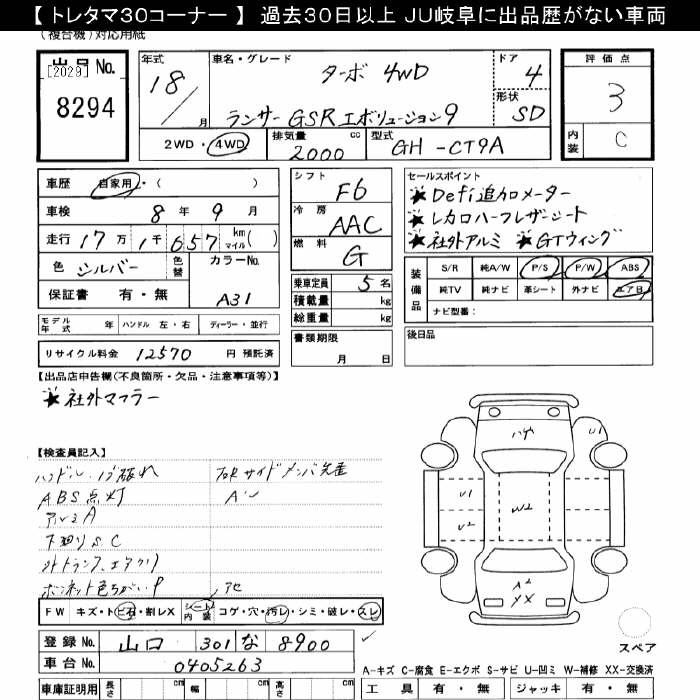 【 トレタマ30コーナー 】 過去30日以上 JU岐阜に出品歴がない車両
(複合機)対応用紙
出品 No. [2029] 8294
年式 18 / 月
車名・グレード ターボ 4WD
ランサー GSR エボリューション9
ドア 4
形状 SD
評価点 3
内装 C
2WD・4WD
排気量 2000 cc
型式 GH -CT9A
車歴 自家用・( )
車検 8 年 9 月
走行 17 万 1 千 657 km マイル( )
色 シルバー 色替
カラーNo. A31
保証書 有・無
シフト F6
冷房 AAC
燃料 G
乗車定員 5 名
積載量 kg
総重量 kg
書類期限
月 日
セールスポイント
★Defi追加メーター
★レカロハーフレザーシート
★社外アルミ ★GTウィング
装備品
S/R 純A/W P/S P/W ABS
純TV 純ナビ 革シート 外ナビ エアB
ナビ型番:
後日品
モデル年式 年 ハンドル 左・右 ディーラー・並行
リサイクル料金 12570 円 預託済
【出品店申告欄(不良箇所・欠品・注意事項等)】
★社外マフラー
【検査員記入】
ABS点灯
アルミA
下廻りSC
FW キズ・トビ石・割レX
シート内装 コゲ・穴・汚レ・シミ・破レ・スレ
登録 No. 山口 301 な 8900
車台 No. 0405263
車庫証明用 長さ cm 幅 cm 高さ cm
U1
U1
U2
W2
A2
YX
スペア
A-キズ C-腐食 E-エクボ S-サビ U-凹ミ W-補修 XX-交換済
工具 有・無 ジャッキ 有・無